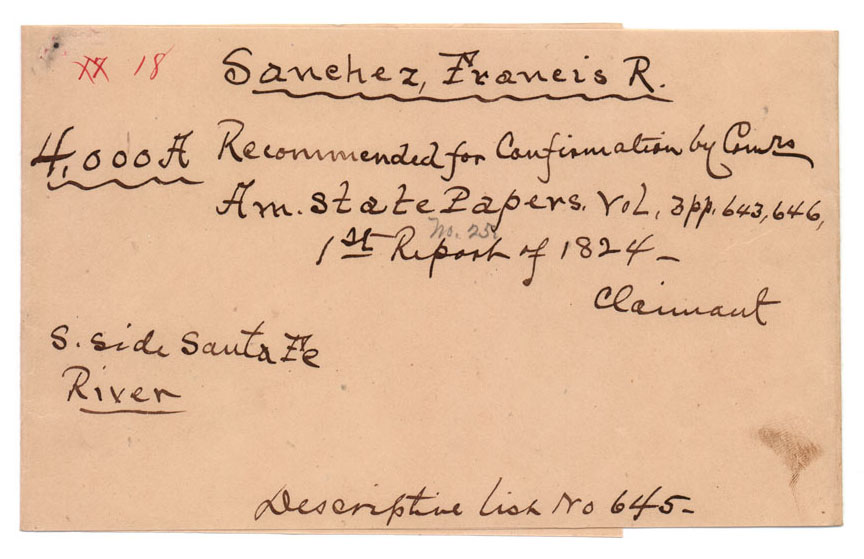 XX 18
Sanchez, Francis R.
4,000 A Recommended for Confirmation by Comrs
Am. State Papers. Vol, 3 pp. 643, 646,
No. 25.
1st Report of 1824 -
Claimant
S. Side Santa Fe
River
Descriptive List No 645 -